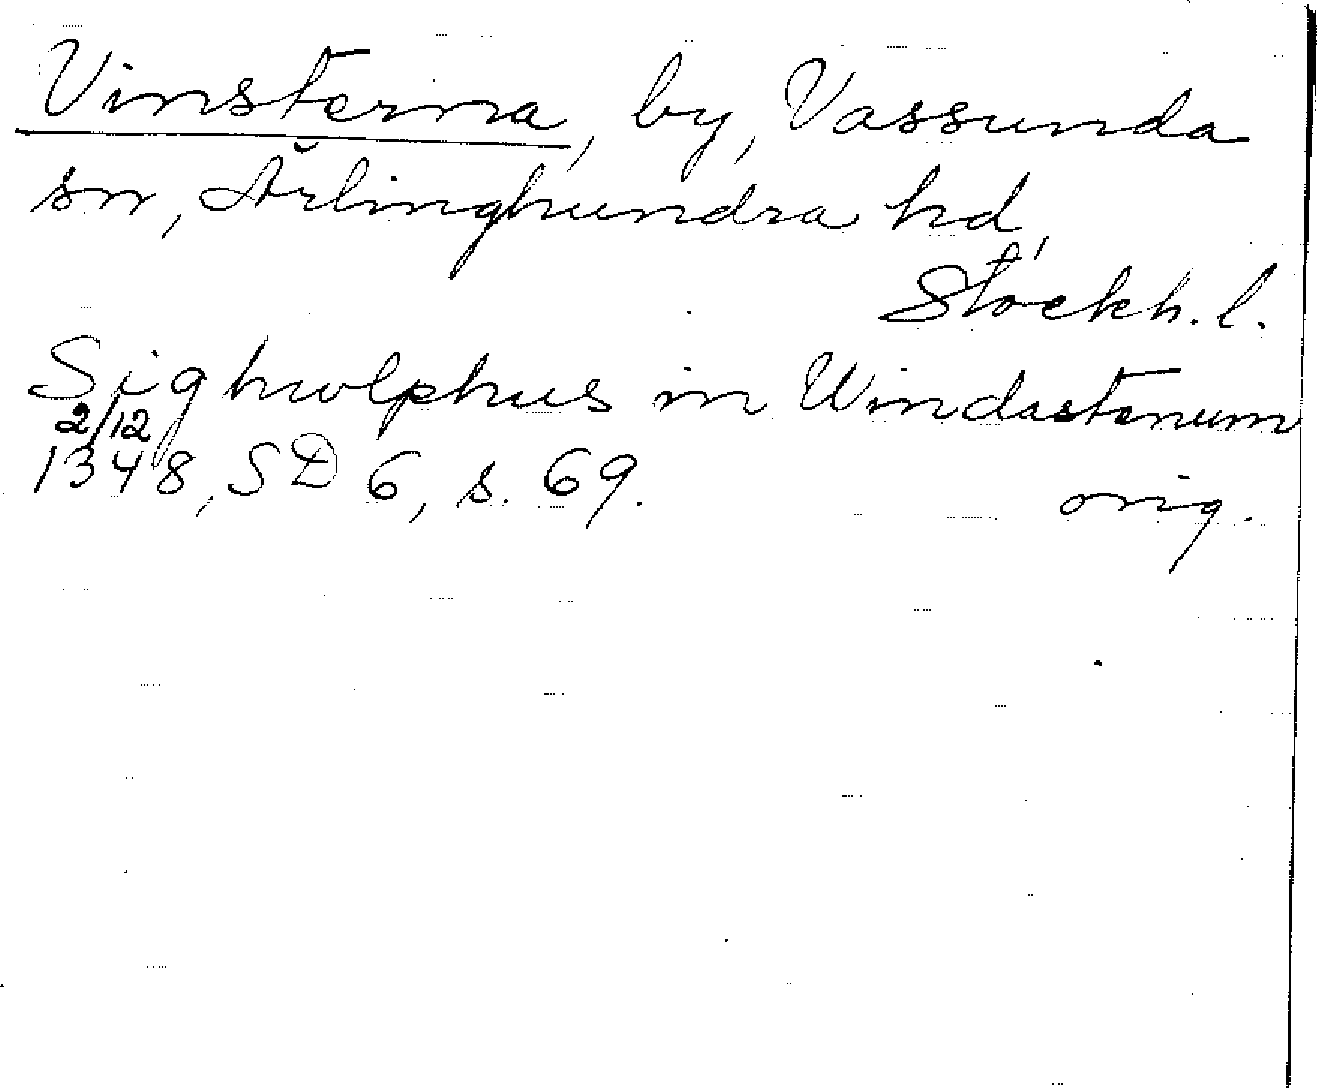 Vinsterna, by, Vassunda
sn, Ärlinghundra hd,
Stockh. l.
Sighwlphus in Windastenum
2/12
1348, SD 6, s. 69.
orig.